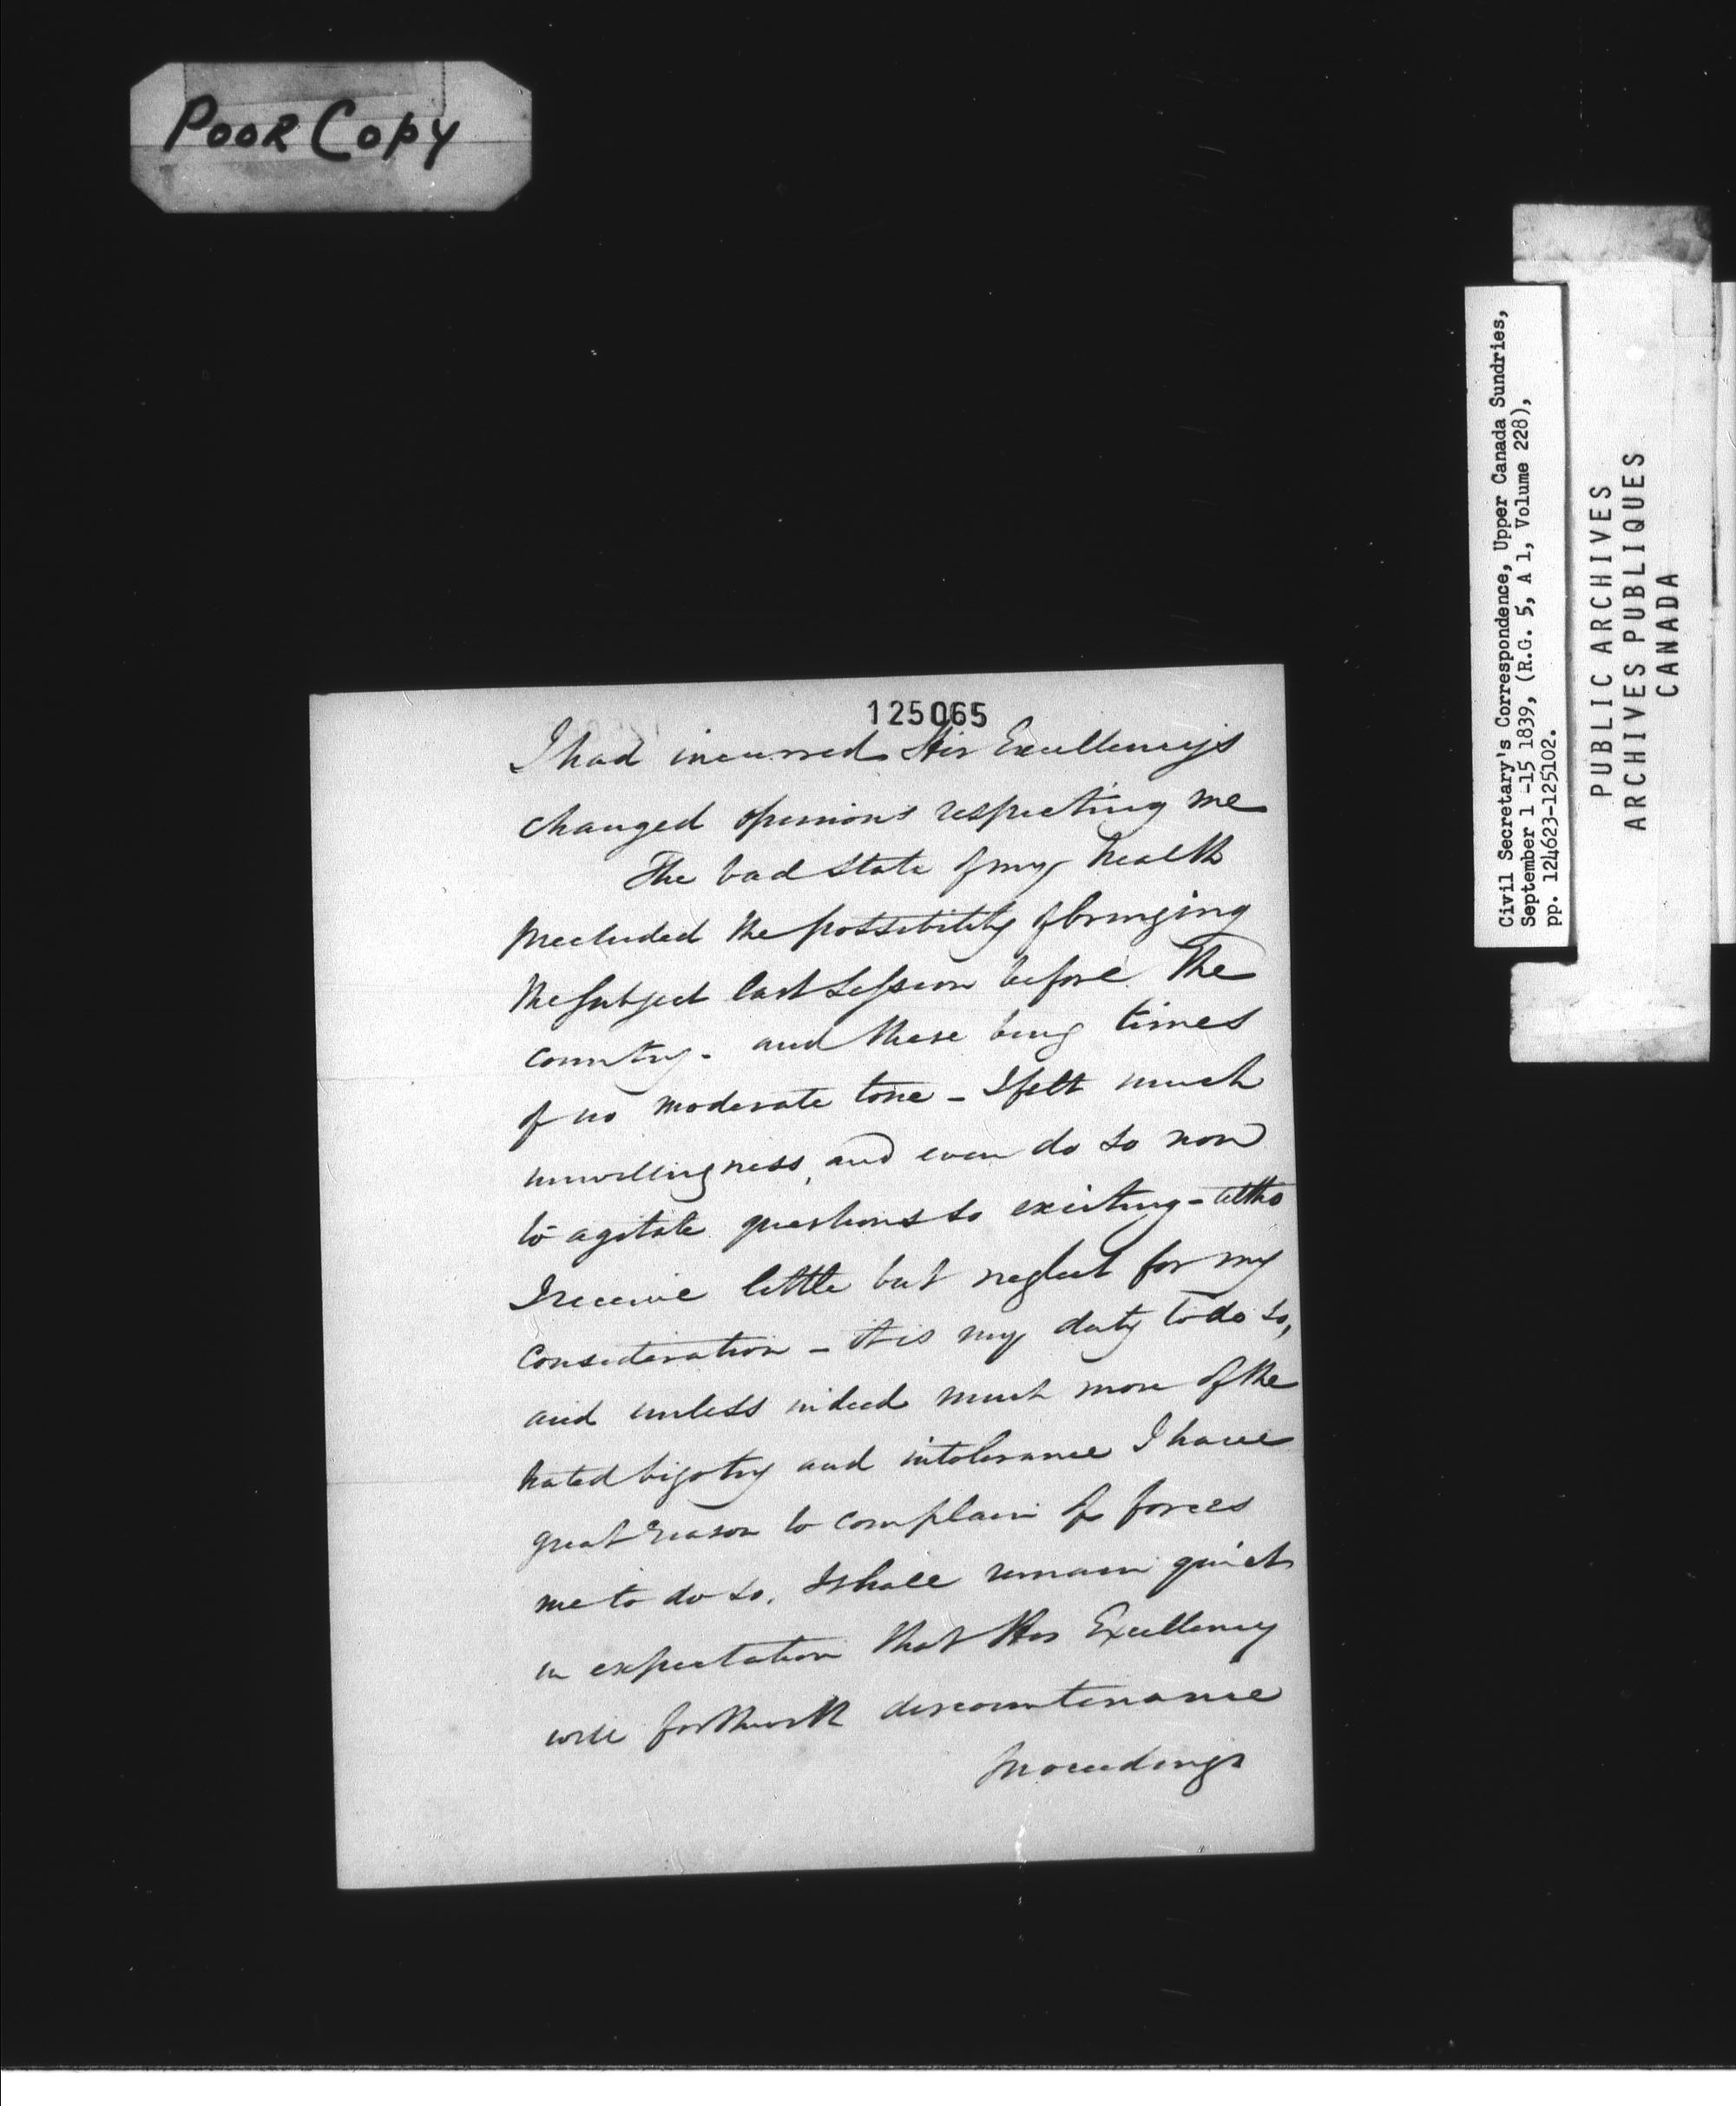 Poor Copy
Civil Secretary's Correspondence, Upper Canada Sundries,
September 1 -15 1839, (R.G. 5, A 1, Volume 228),
pp. 124623-125102.
PUBLIC ARCHIVES
ARCHIVES PUBLIQUES
CANADA
125065
I had incurred His Excellency's
changed opinions respecting me
The bad state of my health
precluded the possibility of bringing
the subject last Session before the
country - and these being times
of no moderate tone - I felt much
unwillingness, and even do so now
to agitate questions so exciting - altho
I receive little but neglect for my
consideration - it is my duty to do so,
and unless indeed much more of the
hated bigotry and intolerance I have
great reason to complain of forces
me to do so. I shall remain quiet
in expectation that His Excellency
will forthwith discountenance
proceedings